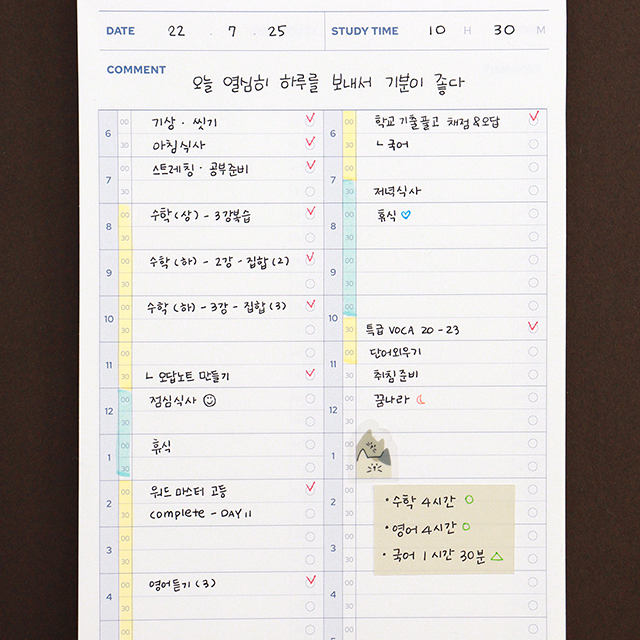 DATE 22 . 7 . 25 STUDY TIME 10 H 30 M
COMMENT
오늘 열심히 하루를 보내서 기분이 좋다
6 00 기상 · 씻기
30 아침식사
7 00 스트레칭 · 공부준비
30
8 00 수학(상) - 3강복습
30
9 00 수학(하) - 2강 - 집합(2)
30
10 00 수학(하) - 3강 - 집합(3)
30
11 00
30 ㄴ 오답노트 만들기
12 00 점심식사
30
1 00 휴식
30
2 00 워드 마스터 고등
30 complete - DAY 11
3 00
30
4 00 영어듣기(3)
30
6 00 학교 기출풀고 채점&오답
30 ㄴ 국어
7 00
30 저녁식사
8 00 휴식
30
9 00
30
10 00
30 특급 VOCA 20 - 23
11 00 단어외우기
30 취침준비
12 00 꿈나라
30
1 00
30
2
3
4 00
30
· 수학 4시간
· 영어 4시간
· 국어 1시간 30분